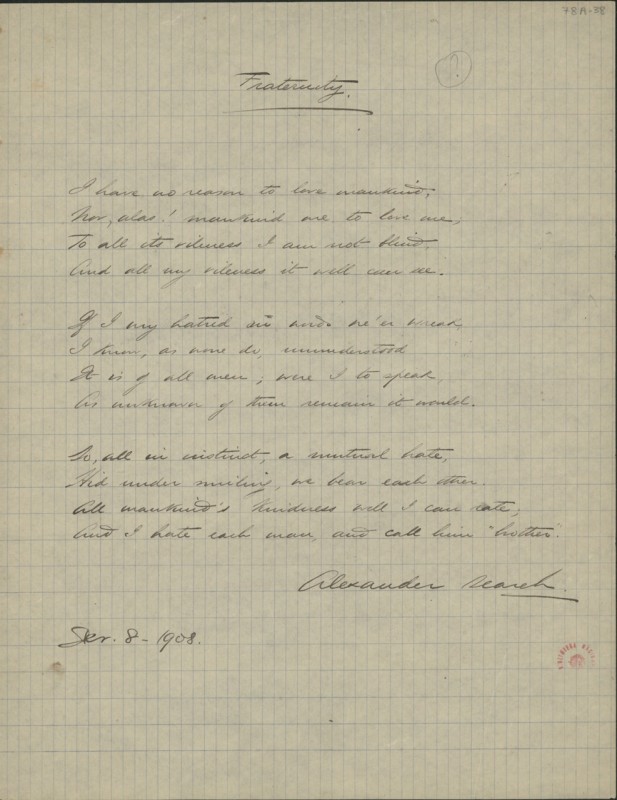 78A-38
?
Fraternity.
I have no reason to love mankind;
Nor, alas! mankind one to love me;
To all its vileness I am not blind,
And all my vileness it well can see.
If I my hatred in words ne'er wreak,
I know, as none do, ununderstood
It is of all men; were I to speak,
As unknown of them remain it would.
So, all in instinct, a mutual hate,
Hid under smiling, we bear each other.
All mankind's kindness well I can rate;
And I hate each man, and call him "brother".
Alexander Search.
8 - 1908.